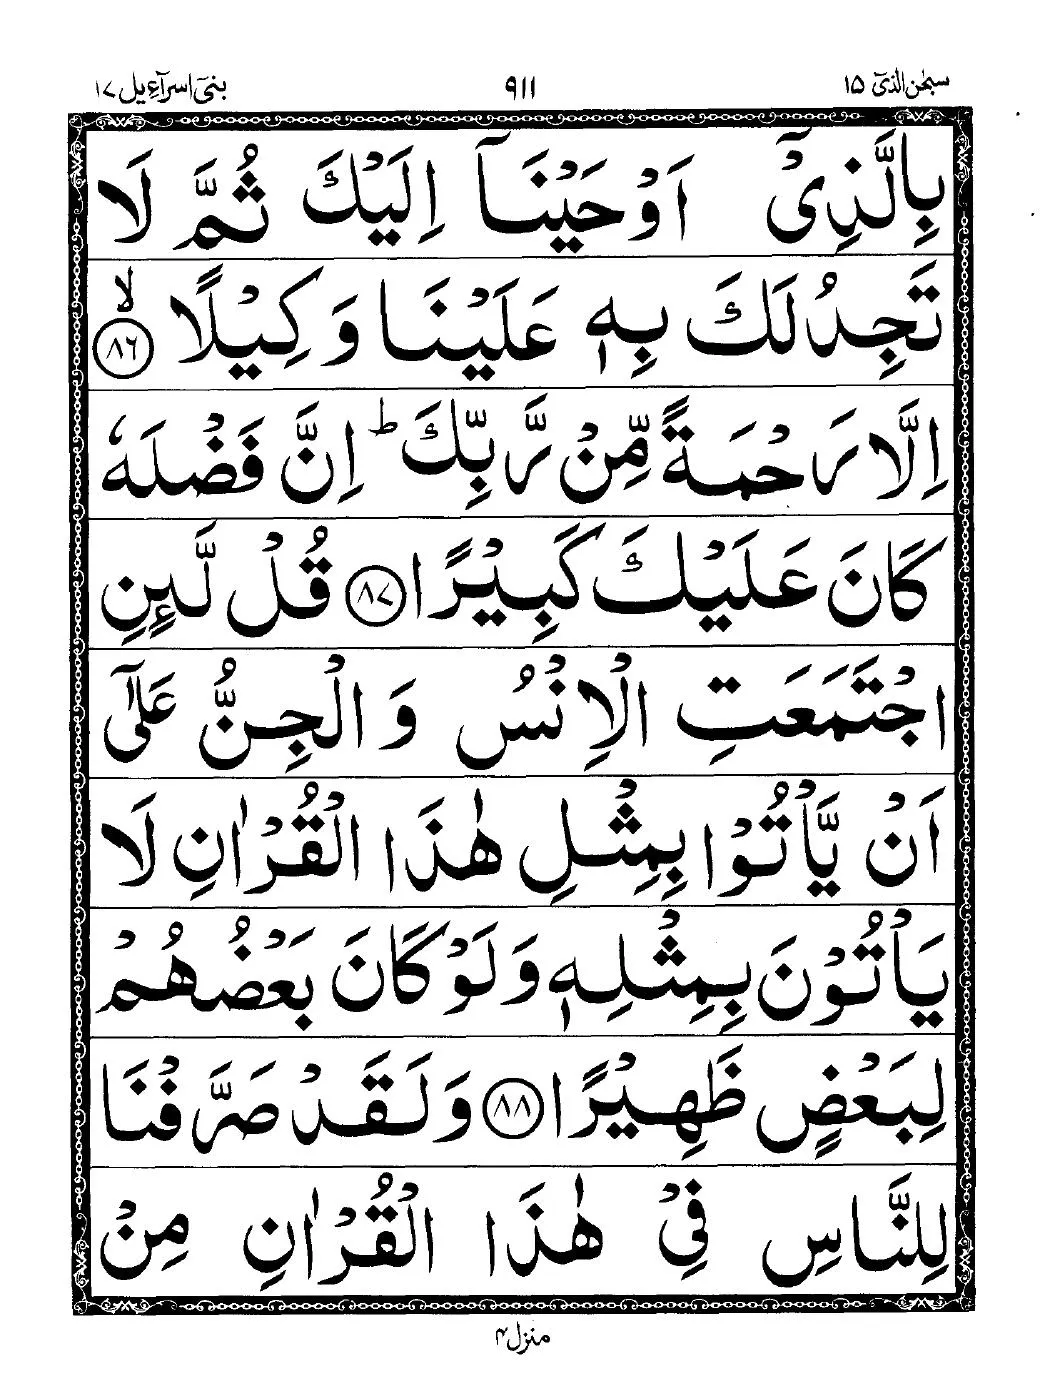 سبحٰن الذیٓ ١٥
٩١١
بنیٓ اسرآءیل ١٧
بِالَّذِیْۤ اَوْحَیْنَاۤ اِلَیْكَ ثُمَّ لَا
تَجِدُ لَكَ بِهٖ عَلَیْنَا وَكِیْلًا ۙ‏﴿٨٦﴾
اِلَّا رَحْمَةً مِّنْ رَّبِّكَ ؕ اِنَّ فَضْلَهٗ
كَانَ عَلَیْكَ كَبِیْرًا ﴿٨٧﴾ قُلْ لَّىِٕنِ
اجْتَمَعَتِ الْاِنْسُ وَ الْجِنُّ عَلٰۤی
اَنْ یَّاْتُوْا بِمِثْلِ هٰذَا الْقُرْاٰنِ لَا
یَاْتُوْنَ بِمِثْلِهٖ وَ لَوْ كَانَ بَعْضُهُمْ
لِبَعْضٍ ظَهِیْرًا ﴿٨٨﴾ وَ لَقَدْ صَرَّفْنَا
لِلنَّاسِ فِیْ هٰذَا الْقُرْاٰنِ مِنْ
منزل ۴